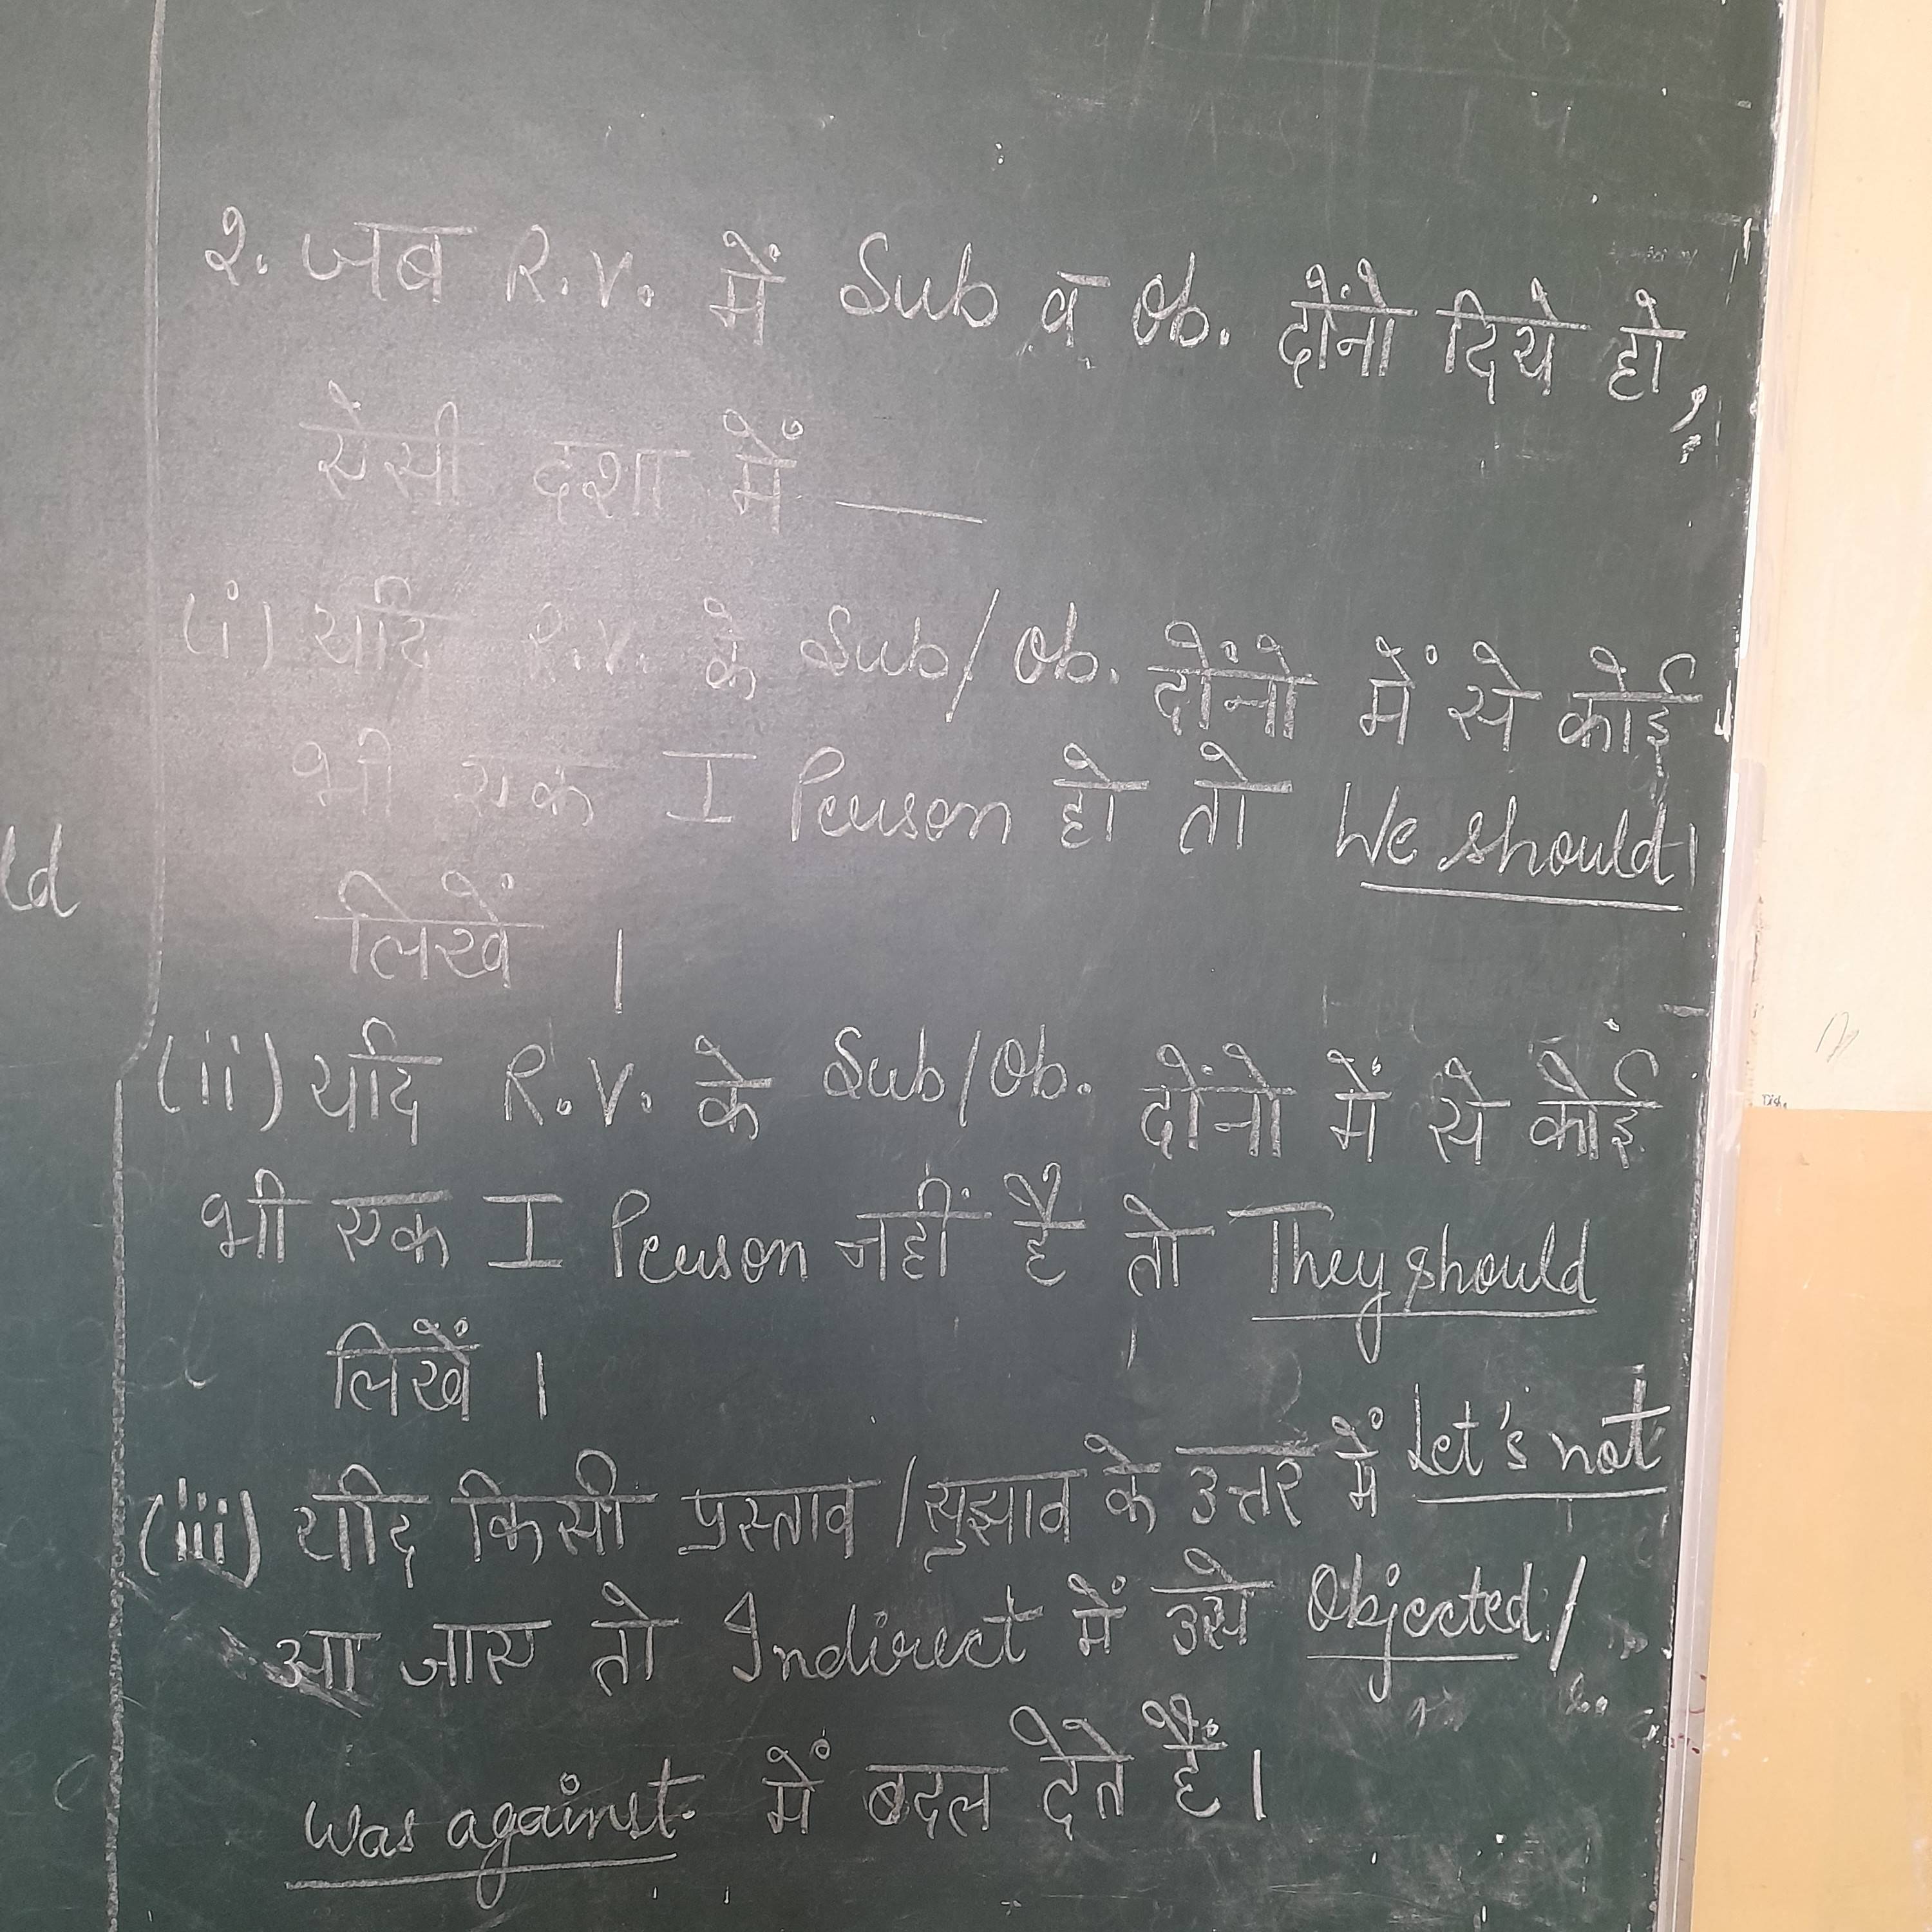 २. जब R.V. में Sub व Ob. दोंनो दिये हो,
ऐसी दशा में —
(i) यदि R.V. के Sub/Ob. दोंनो में से कोई
भी एक I Person हो तो We should
लिखें ।
(ii) यदि R.V. के Sub/Ob. दोंनो में से कोई
भी एक I Person नहीं है तो They should
लिखें ।
(iii) यदि किसी प्रस्ताव/सुझाव के उत्तर में Let's not
आ जाए तो Indirect में उसे Objected/
was against में बदल देते हैं।
ld